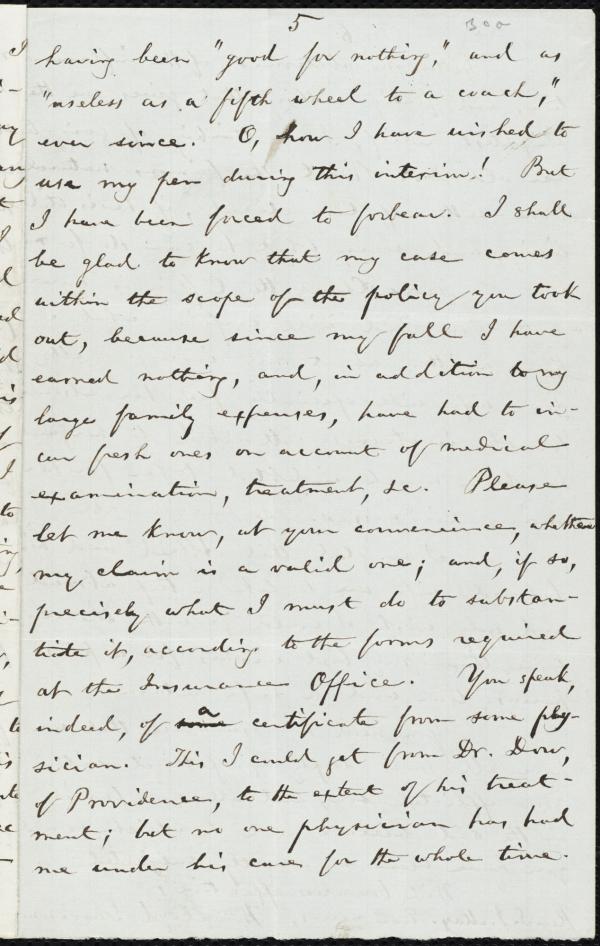 5 300
having been "good for nothing," and as
"useless as a fifth wheel to a coach,"
ever since. O, how I have wished to
use my pen during this interim! But
I have been forced to forbear. I shall
be glad to know that my case comes
within the scope of the policy you took
out, because since my fall I have
earned nothing, and, in addition to my
large family expenses, have had to in-
cur fresh ones on account of medical
examination, treatment, &c. Please
let me know, at your convenience, whether
my claim is a valid one; and, if so,
precisely what I must do to substan-
tiate it, according to the forms required
at the Insurance Office. You speak,
indeed, of some a certificate from some phy-
sician. This I could get from Dr. Dow,
of Providence, to the extent of his treat-
ment; but no one physician has had
me under his care for the whole time.